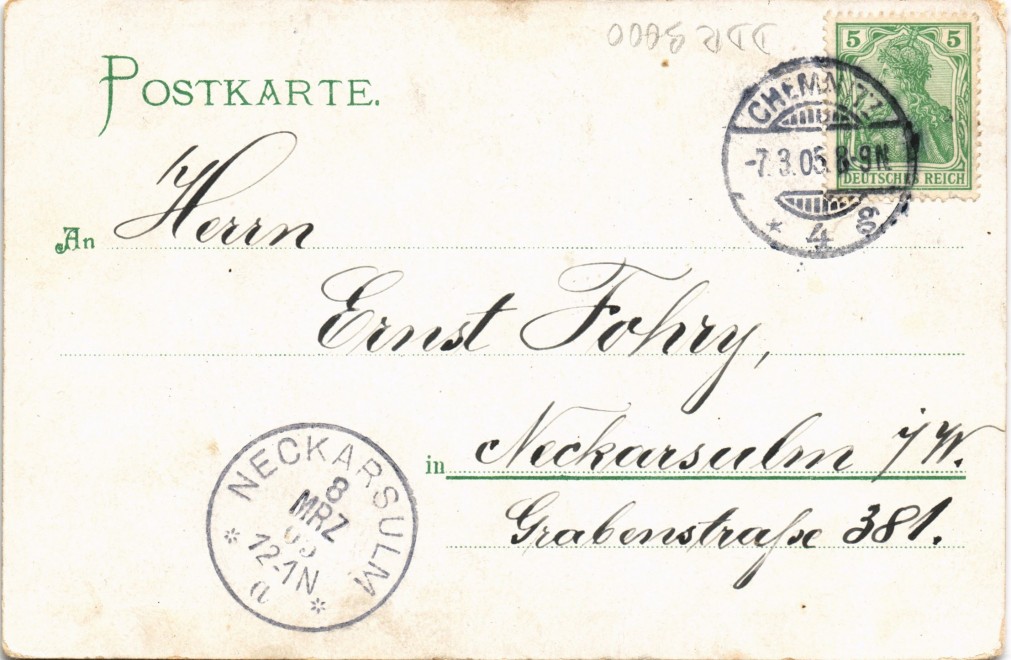 POSTKARTE.
5 5
DEUTSCHES REICH
CHEMNITZ
-7.3.05.8-9N
* 4 g
An Herrn
Ernst Fohry,
in Neckarsulm i/W.
Grabenstraße 381.
NECKARSULM
8
MRZ
05
12-1N
* a *